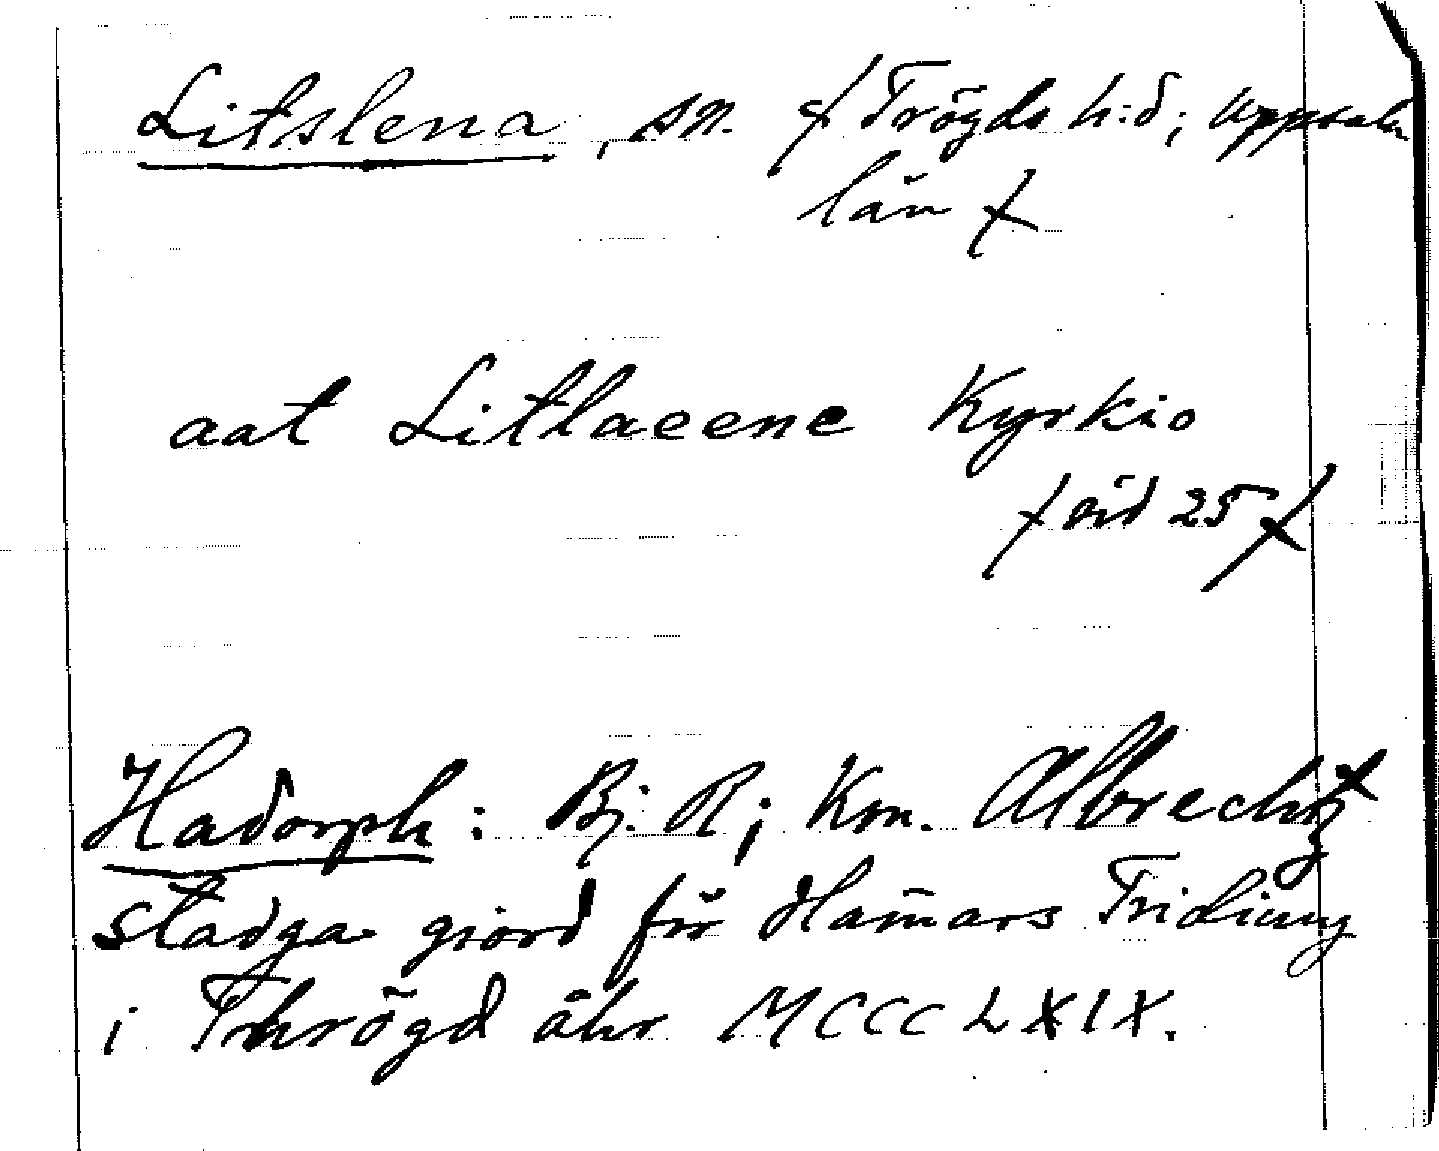 Litslena, sn. / Trögds h:d; Uppsala
län /
aat Litlaeene Kyrkio
/ sid 25 /
Hadorph: Bj. R; Kon. Albrechtz
stadga giord för Ham̄ars Tridiung
i Thrögd åhr MCCCLXIX.